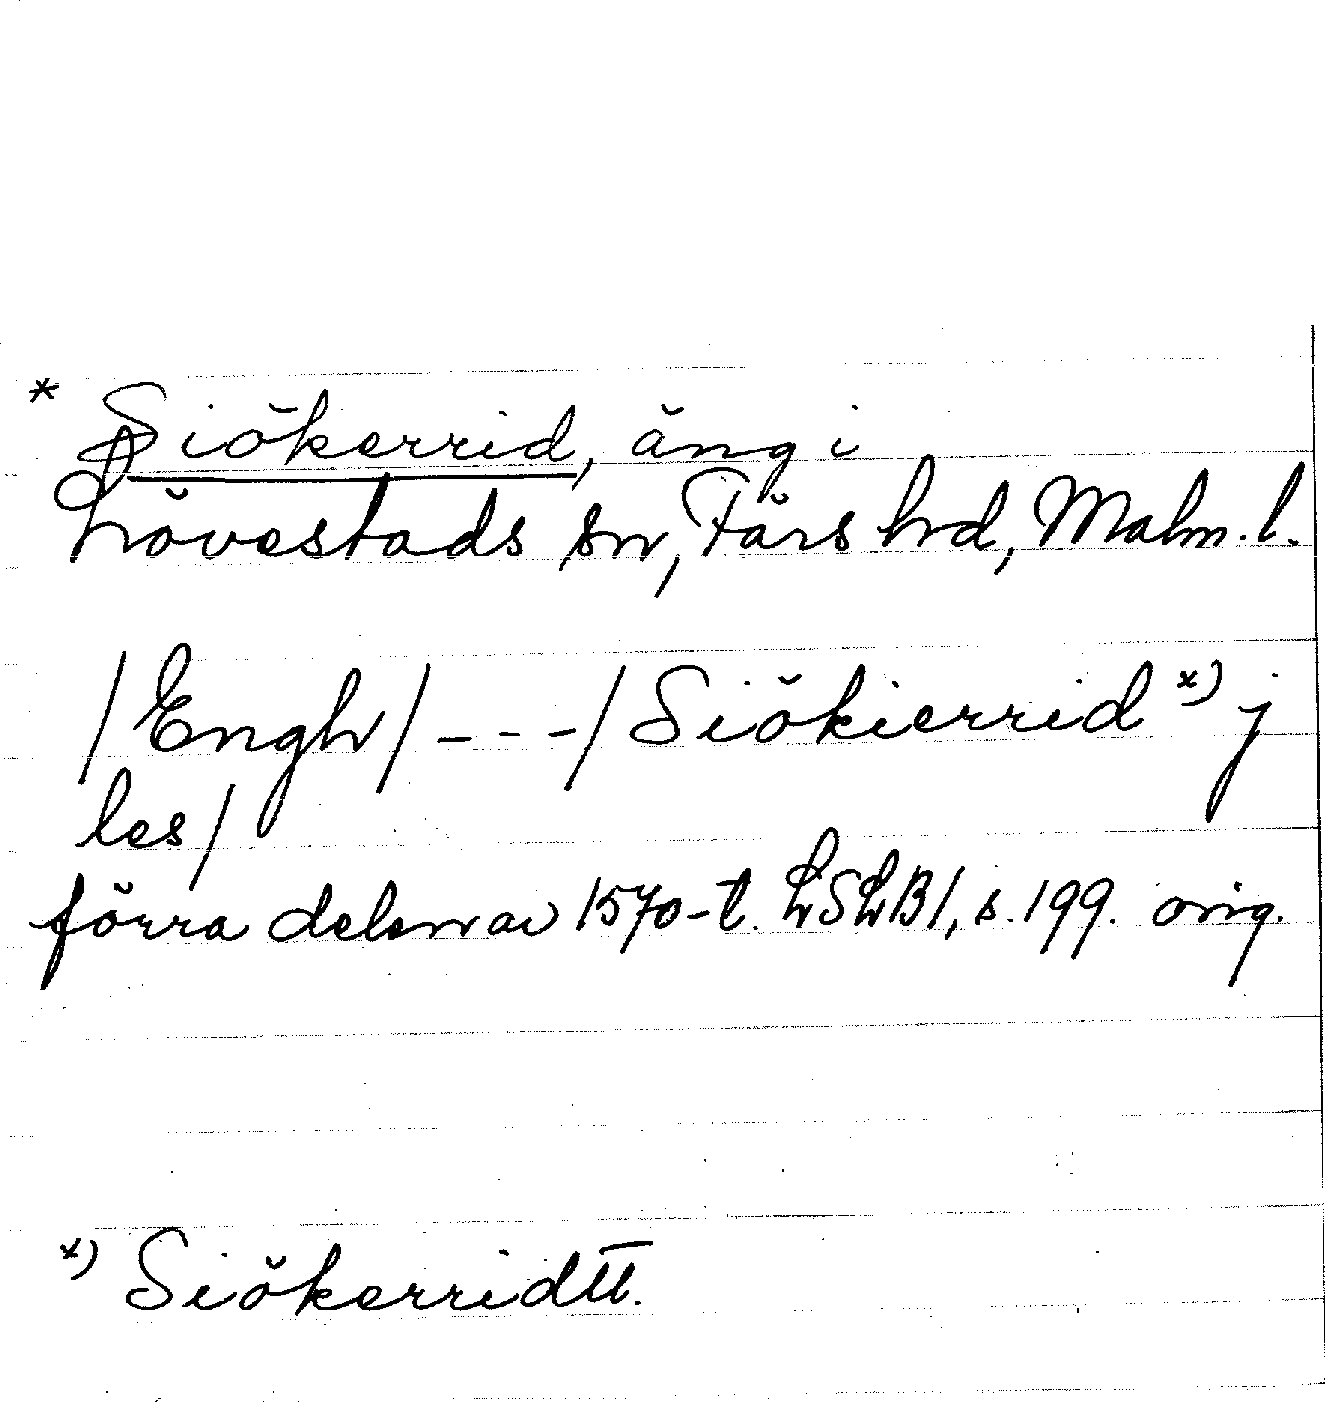 * Siökerrid, äng i
Lövestads sn, Färs hd, Malm. l.
/Engh/ - - - / Siökierrid x) j
les/
förra delen av 1570-t. LSLB1, s. 199. orig.
x) Siökerridtt.